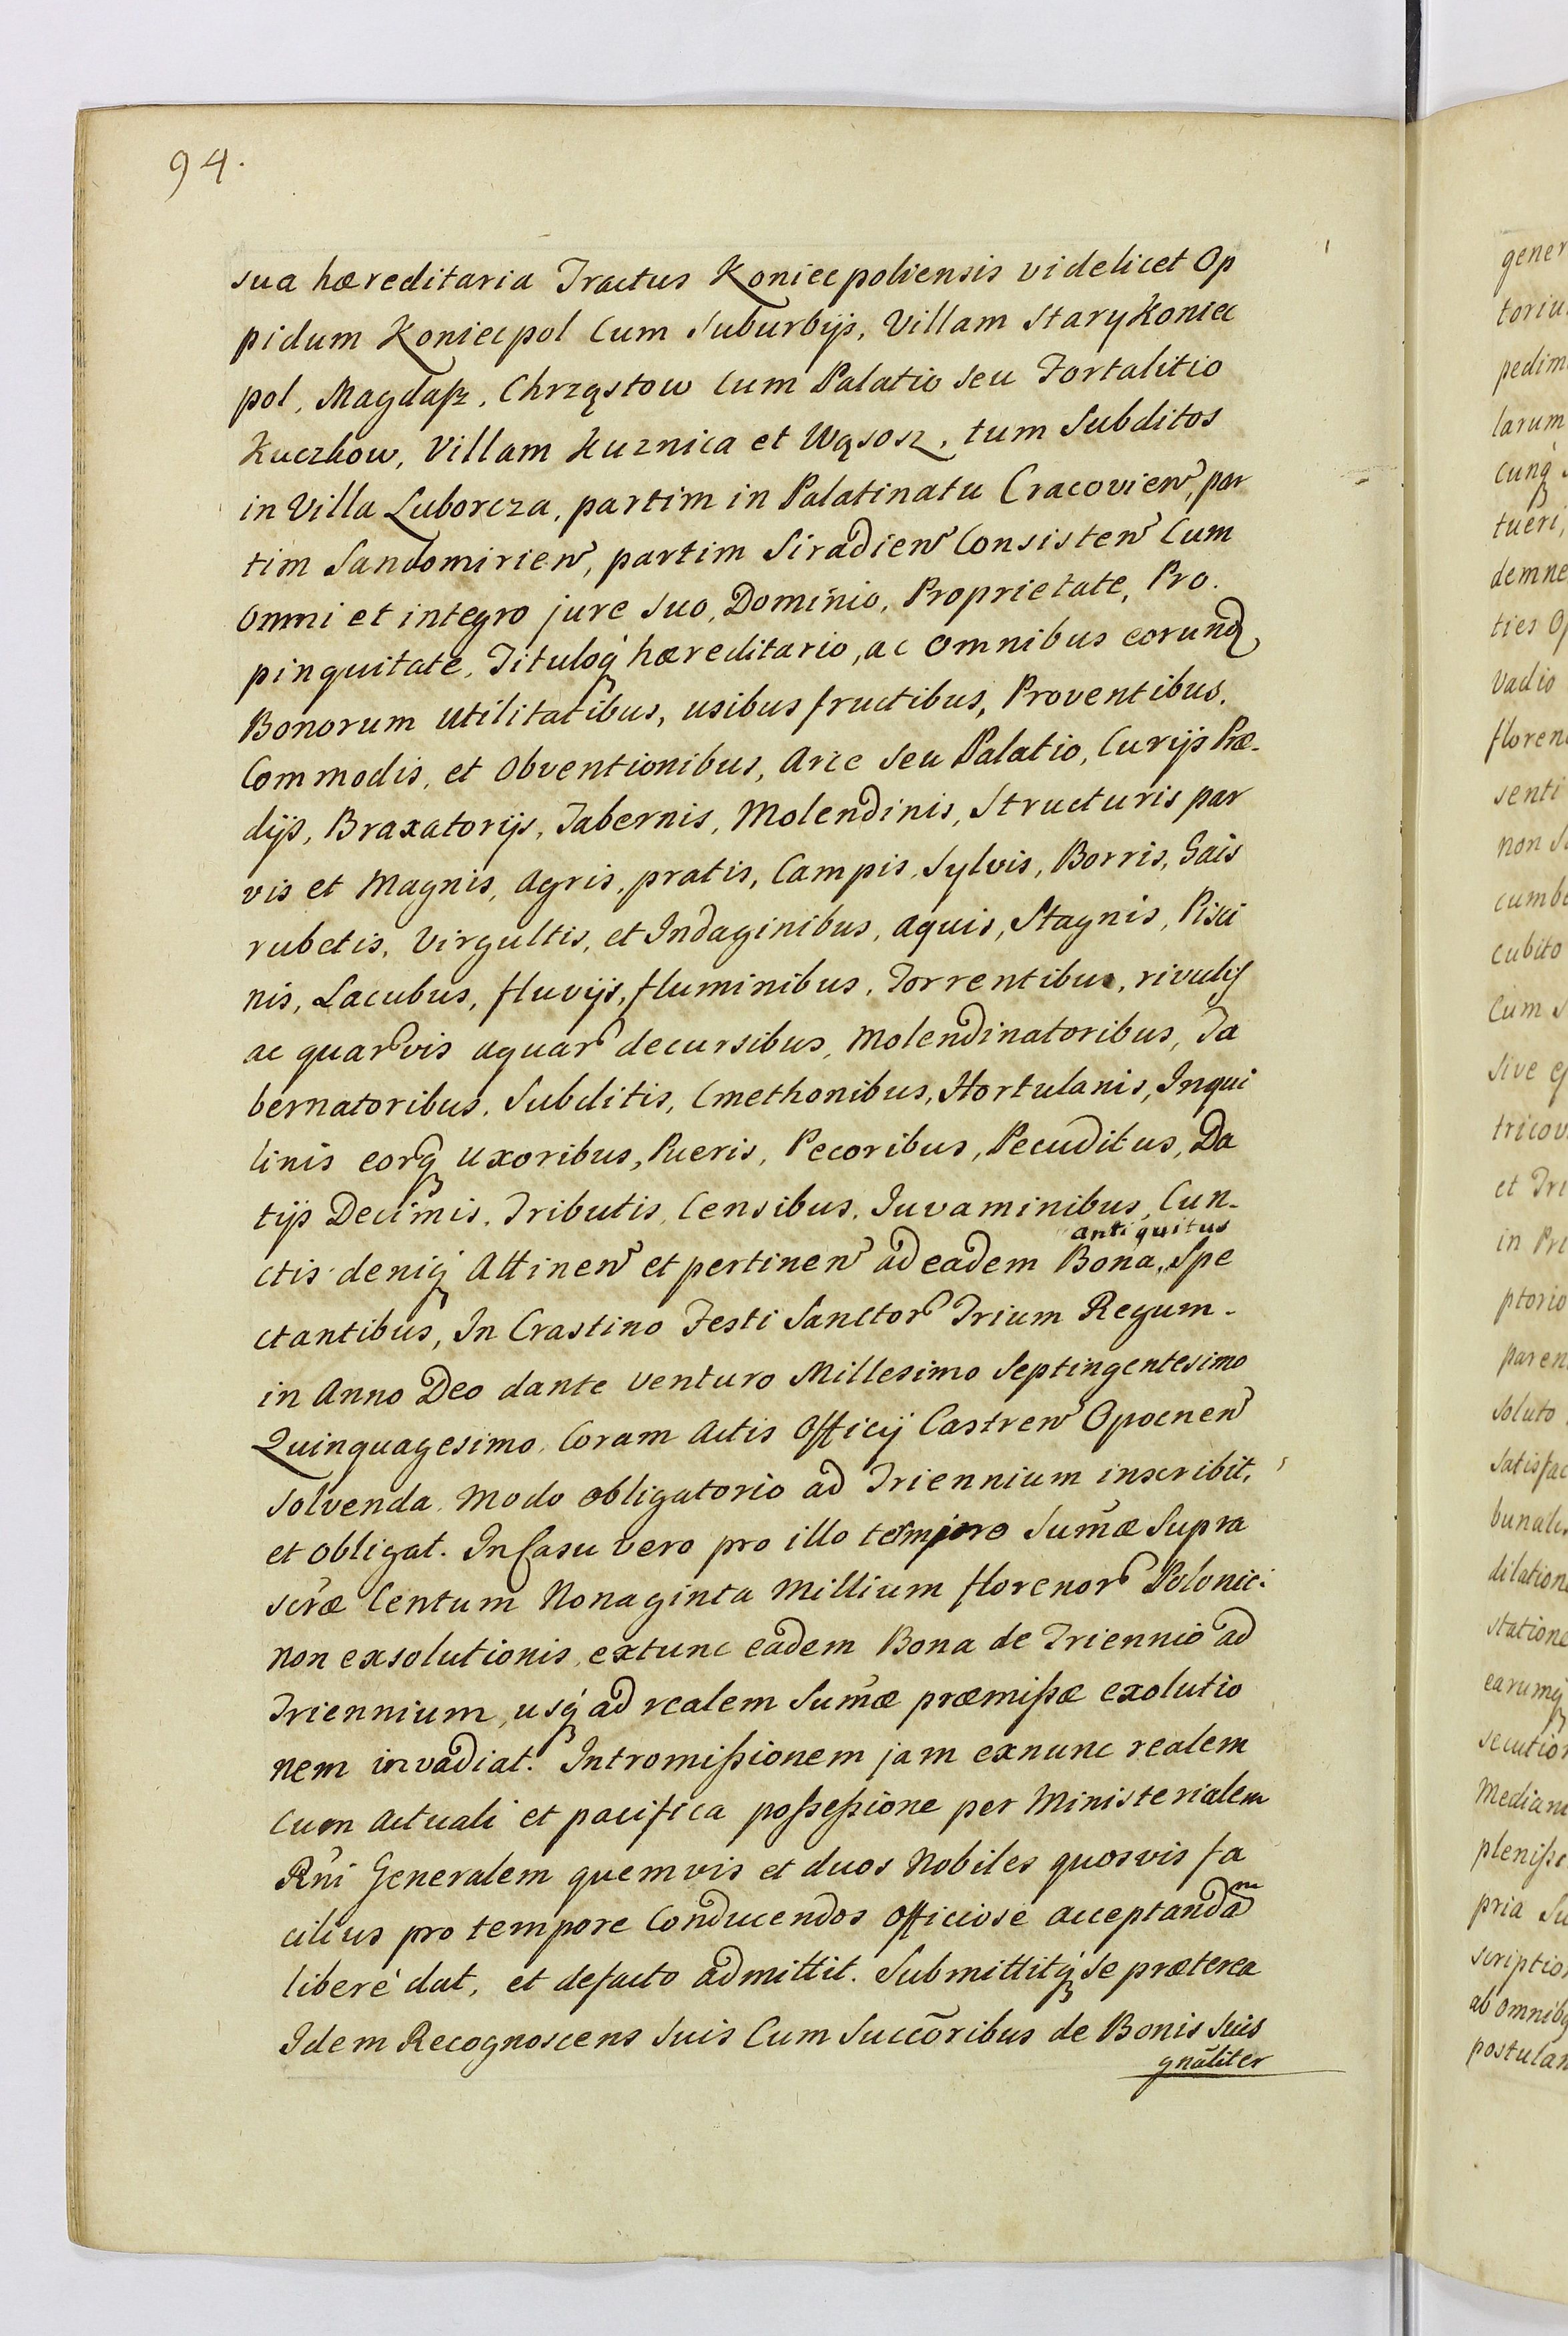 94.
sua hæreditaria Tractus Koniecpoliensis videlicet Op
pidum Koniecpol Cum Suburbijs, Villam Stary Koniec
pol, Magdasz, Chrząstow Cum Palatio seu Fortalitio
Kuczkow, Villam Kuznica et Wąsosz, tum Subditos
in Villa Luborcza, partim in Palatinatu Cracovien, par
tim Sandomirien, partim Siradien Consisten Cum
Omni et integro jure suo, Dominio, Proprietate, Pro.
pinquitate, Tituloq hæreditario, ac Omnibus eorunđ
Bonorum utilitatibus, usibus fructibus, Proventibus,
Commodis, et Obventionibus, Arce seu Palatio, Curijs Præ-
dijs, Braxatorijs, Tabernis, Molendinis, Structuris par
vis et Magnis, Agris, pratis, Campis, Sylvis, Borris, Gais
rubetis, Virgultis, et Indaginibus, aquis, Stagnis, Pisci
nis, Lacubus, fluvijs, fluminibus, Torrentibus, rivulis
ac quarvis aquar decursibus, Molendinatoribus, Ta
bernatoribus, Subditis, Cmethonibus, Hortulanis, Inqui
linis eorq uxoribus, Pueris, Pecoribus, Pecuditus, Da
tijs Decimis, Tributis, Censibus, Iuvaminibus, Cun-
antiquitus
ctis deniq Attinen et pertinen ad eadem Bona, Spe
ctantibus, In Crastino Festi Sanctor Trium Regum-
in Anno Deo dante venturo Millesimo Septingentesimo
Quinquagesimo, Coram Actis Officij Castren Opocnen
solvenda, Modo obligatorio ad Triennium inscribit,
et obligat. In Casu vero pro illo tempore Sum̃æ Supra
scr̃æ Centum Nonaginta Millium florenor Polonic:
non exsolutionis, extunc eadem Bona de Triennio ad
Triennium, usq ad realem Sum̃æ præmissæ exolutio
nem invadiat. Intromissionem jam exnunc realem
Cum actuali et pacifica possessione per Ministerialem
Rñi Generalem quemvis et duos Nobiles quosvis fa
cilius pro tempore Conducendos Officiose acceptandam
liberè dat, et defacto admittit. Submittitq se præterea
Idem Recognoscens suis Cum Succõribus de Bonis suis
gnãliter
gener
toriu
pedim
larum
cunq
tueri,
demne
ties Op
vadio
floren
senti
non Su
cumbe
cubito
Cum s
sive
tricov
et Tri
in Pri
ptorio
paren
soluto
satisfac
bunali
dilation
statione
earumq
secution
Median
plenisse
pria Su
scription
ab omnibq
postulan